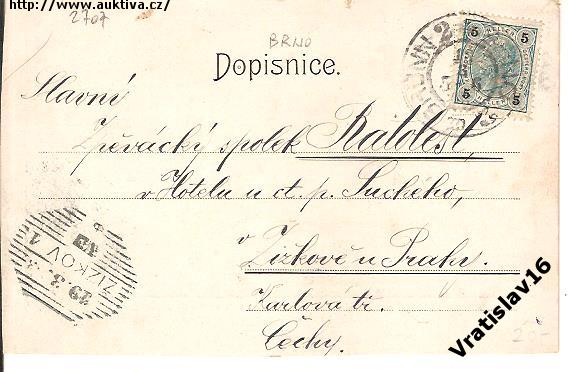 http://www.auktiva.cz/
2707
BRNO
Dopisnice.
BRÜNN 2
5 HELLER 5
5 5
Slavní
Zpěvácký spolek Ratolest,
v Hotelu u ct. p. Suchého,
v
Žižkově u Prahy.
Karlova tř.
Čechy.
ŽIŽKOV 1
29.3.
Vratislav.16